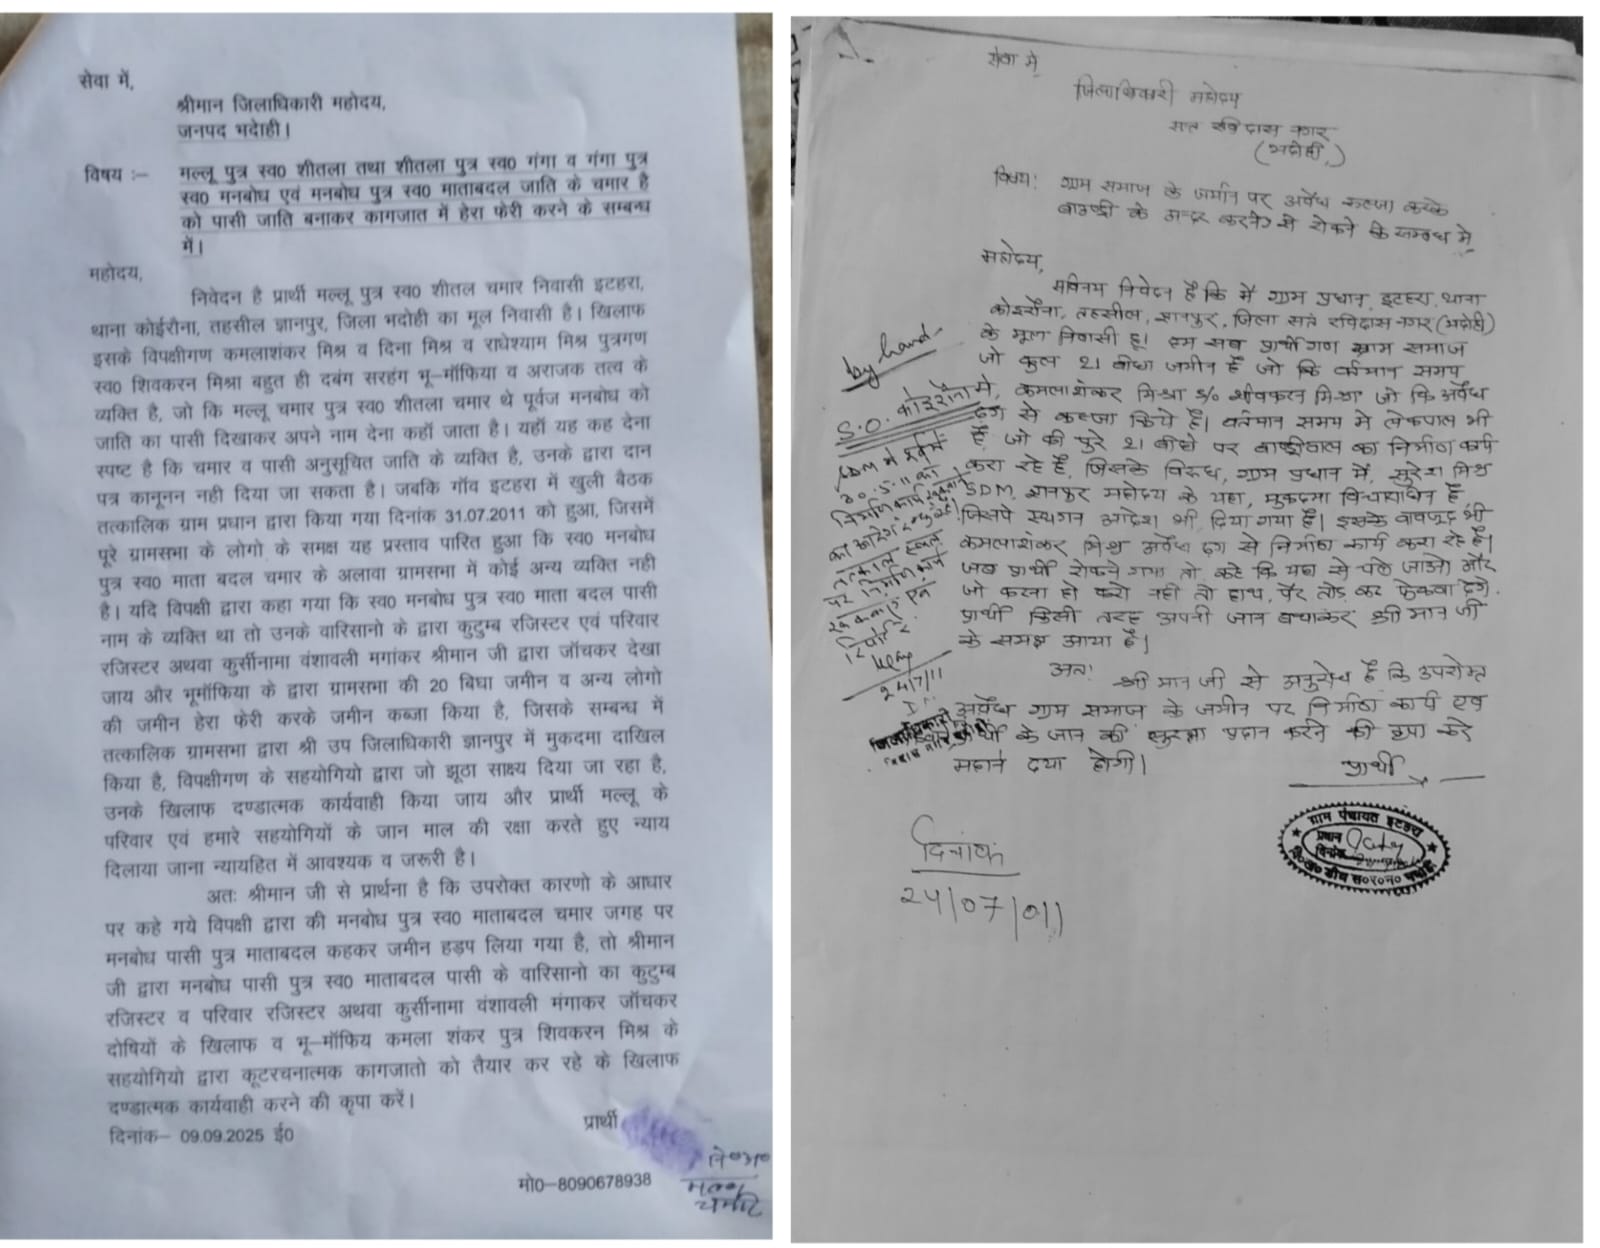 सेवा में,
श्रीमान जिलाधिकारी महोदय,
जनपद भदोही।
विषय :– मल्लू पुत्र स्व0 शीतला तथा शीतला पुत्र स्व0 गंगा व गंगा पुत्र
स्व0 मनबोध एवं मनबोध पुत्र स्व0 माताबदल जाति के चमार है
को पासी जाति बनाकर कागजात में हेरा फेरी करने के सम्बन्ध
में।
महोदय,
निवेदन है प्रार्थी मल्लू पुत्र स्व0 शीतल चमार निवासी इटहरा,
थाना कोईरौना, तहसील ज्ञानपुर, जिला भदोही का मूल निवासी है। खिलाफ
इसके विपक्षीगण कमलाशंकर मिश्र व दिना मिश्र व राधेश्याम मिश्र पुत्रगण
स्व0 शिवकरन मिश्रा बहुत ही दबंग सरहंग भू–मॉफिया व अराजक तत्व के
व्यक्ति है, जो कि मल्लू चमार पुत्र स्व0 शीतला चमार थे पूर्वज मनबोध को
जाति का पासी दिखाकर अपने नाम देना कहॉ जाता है। यहॉ यह कह देना
स्पष्ट है कि चमार व पासी अनुसूचित जाति के व्यक्ति है, उनके द्वारा दान
पत्र कानूनन नही दिया जा सकता है। जबकि गॉव इटहरा में खुली बैठक
तत्कालिक ग्राम प्रधान द्वारा किया गया दिनांक 31.07.2011 को हुआ, जिसमें
पूरे ग्रामसभा के लोगो के समक्ष यह प्रस्ताव पारित हुआ कि स्व0 मनबोध
पुत्र स्व0 माता बदल चमार के अलावा ग्रामसभा में कोई अन्य व्यक्ति नही
है। यदि विपक्षी द्वारा कहा गया कि स्व0 मनबोध पुत्र स्व0 माता बदल पासी
नाम के व्यक्ति था तो उनके वारिसानो के द्वारा कुटुम्ब रजिस्टर एवं परिवार
रजिस्टर अथवा कुर्सीनामा वंशावली मगांकर श्रीमान जी द्वारा जॉचकर देखा
जाय और भूमॉफिया के द्वारा ग्रामसभा की 20 बिघा जमीन व अन्य लोगो
की जमीन हेरा फेरी करके जमीन कब्जा किया है, जिसके सम्बन्ध में
तत्कालिक ग्रामसभा द्वारा श्री उप जिलाधिकारी ज्ञानपुर में मुकदमा दाखिल
किया है, विपक्षीगण के सहयोगियो द्वारा जो झूठा साक्ष्य दिया जा रहा है,
उनके खिलाफ दण्डात्मक कार्यवाही किया जाय और प्रार्थी मल्लू के
परिवार एवं हमारे सहयोगियों के जान माल की रक्षा करते हुए न्याय
दिलाया जाना न्यायहित में आवश्यक व जरूरी है।
अतः श्रीमान जी से प्रार्थना है कि उपरोक्त कारणो के आधार
पर कहे गये विपक्षी द्वारा की मनबोध पुत्र स्व0 माताबदल चमार जगह पर
मनबोध पासी पुत्र माताबदल कहकर जमीन हड़प लिया गया है, तो श्रीमान
जी द्वारा मनबोध पासी पुत्र स्व0 माताबदल पासी के वारिसानो का कुटुम्ब
रजिस्टर व परिवार रजिस्टर अथवा कुर्सीनामा वंशावली मंगाकर जॉचकर
दोषियों के खिलाफ व भू–मॉफिय कमला शंकर पुत्र शिवकरन मिश्र के
सहयोगियो द्वारा कूटरचनात्मक कागजातो को तैयार कर रहे के खिलाफ
दण्डात्मक कार्यवाही करने की कृपा करें।
दिनांक– 09.09.2025 ई0
प्रार्थी
नि०अ०
मल्लू
चमार
मो0–8090678938
सेवा में
जिलाधिकारी महोदय
सन्त रविदास नगर
(भदोही)
विषय: ग्राम समाज के जमीन पर अवैध कब्जा करके
बाउण्ड्री के अन्दर करने से रोकने के सम्बन्ध में
महोदय,
सविनय निवेदन है कि मैं ग्राम प्रधान, इटहरा, थाना
कोइरौना, तहसील, ज्ञानपुर, जिला सन्त रविदास नगर (भदोही)
के मूल निवासी हू। हम सब प्रार्थीगण ग्राम समाज
जो कुल 21 बीघा जमीन है जो कि वर्तमान समय
में, कमलाशंकर मिश्रा S/o शीवकरन मिश्रा जो कि अवैध
ढंग से कब्जा किये है। वर्तमान समय मे लेकपाल भी
है, जो की पुरे 21 बीघे पर बाण्ड्रीवाल का निर्माण कार्य
करा रहे है, जिसके विरुध, ग्राम प्रधान में, सुरेश मिश्र
SDM, ज्ञानपुर महोदय के यहा, मुकदमा विचाराधिन है
जिसपे स्थगन आदेश भी दिया गया है। इसके बावजूद भी
कमलाशंकर मिश्र अवैध ढग से निर्माण कार्य करा रहे है।
जब प्रार्थी रोकने गया तो कहे कि यहा से चले जाओ और
जो करना हो करो नही तो हाथ, पैर तोड़ कर फेकवा देगे.
प्रार्थी किसी तरह अपनी जान बचाकर श्री मान जी
के समक्ष आया है।
अतः
श्री मान जी से अनुरोध है कि उपरोक्त
अवैध ग्राम समाज के जमीन पर निर्माण कार्य एव
प्रार्थी के जान की सुरक्षा प्रदान करने की कृपा करे
महान दया होगी।
प्रार्थी
by hand
S.O. कोइरौना
SDM ने
20.5.11 को
निर्माण कार्य
का आदेश
तत्काल
पर निर्माण कार्य
24/7/11
जिलाधिकारी
ग्राम पंचायत इटहरा
प्रधान
दिनांक
वि०ख० डीघ स०र०न० भदोही
दिनांक
24/07/011